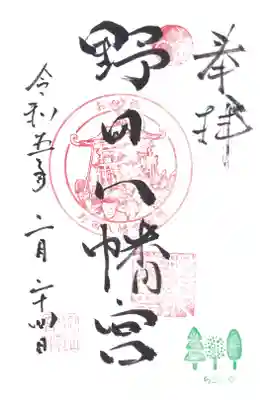 奉拝
野田八幡宮
令和五年二月二十四日